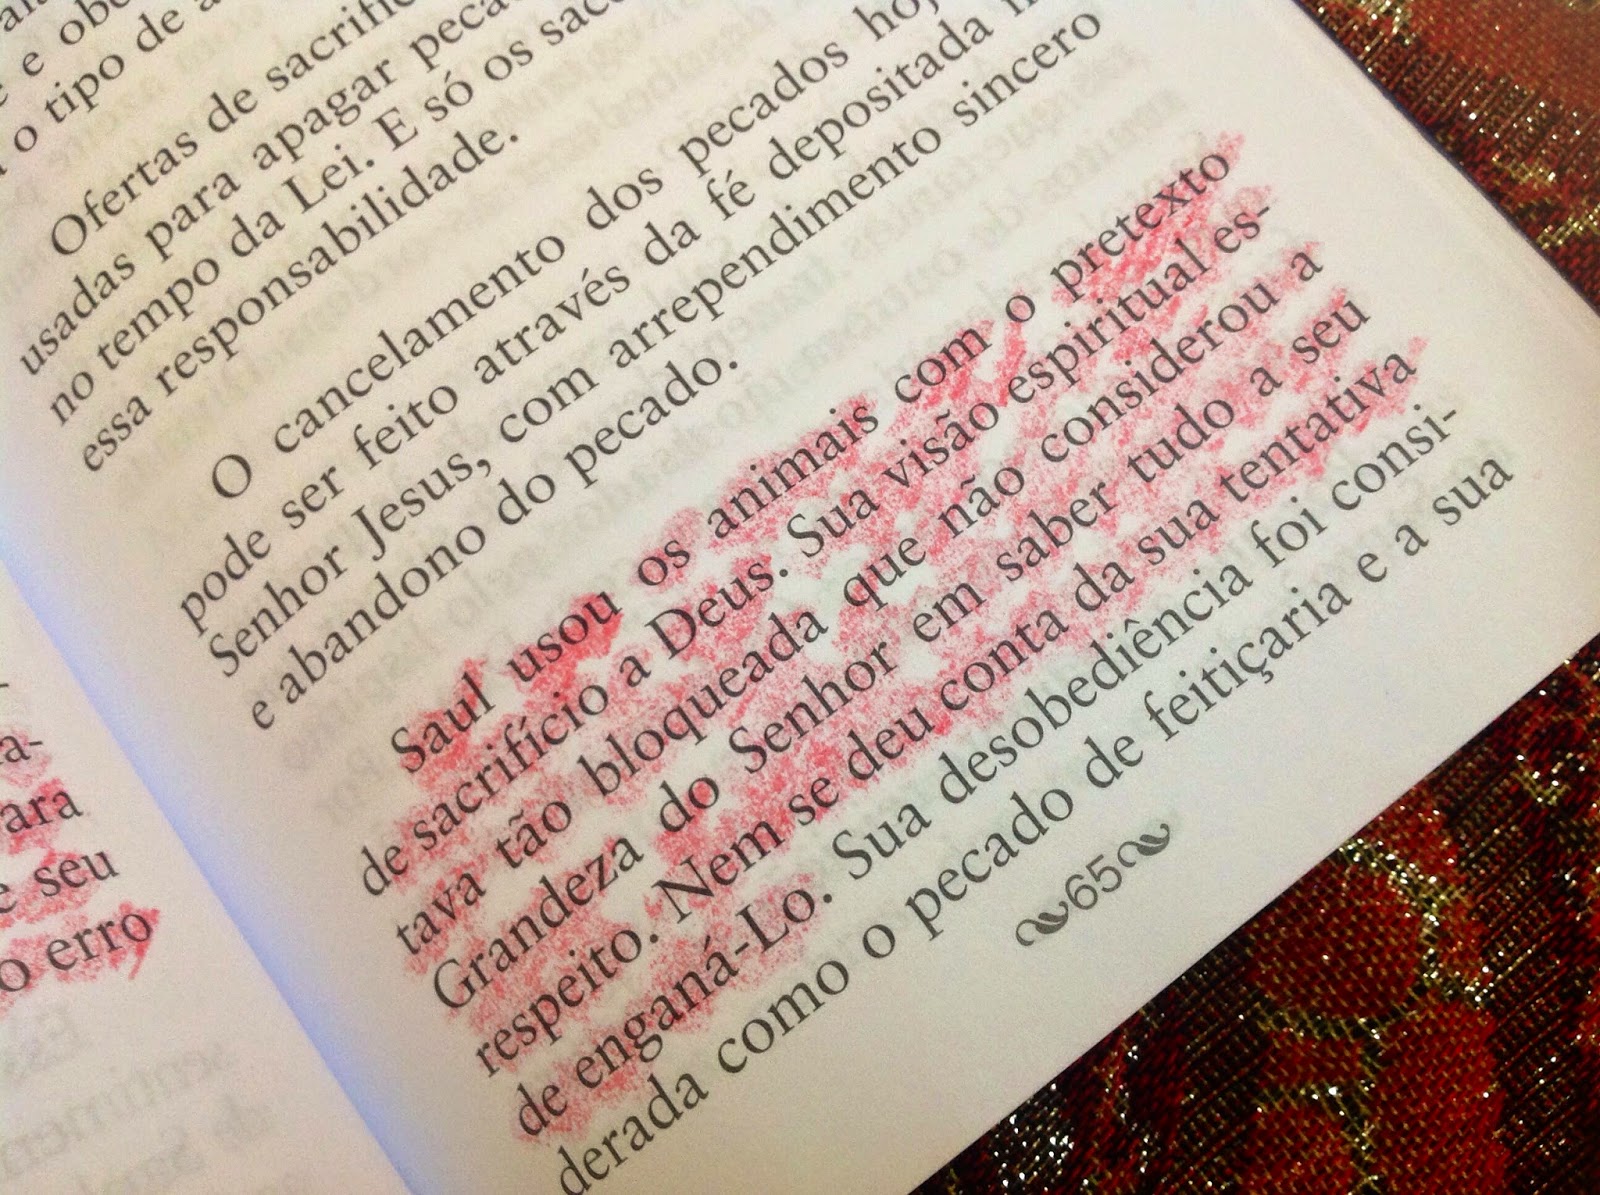 e obe
o tipo de a
Ofertas de sacrifíc
usadas para apagar peca
no tempo da Lei. E só os sace
essa responsabilidade.
O cancelamento dos pecados hoj
pode ser feito através da fé depositada n
Senhor Jesus, com arrependimento sincero
e abandono do pecado.
Saul usou os animais com o pretexto
de sacrifício a Deus. Sua visão espiritual es-
tava tão bloqueada que não considerou a
Grandeza do Senhor em saber tudo a seu
respeito. Nem se deu conta da sua tentativa
de enganá-Lo. Sua desobediência foi consi-
derada como o pecado de feitiçaria e a sua
65
a-
ara
e seu
o erro